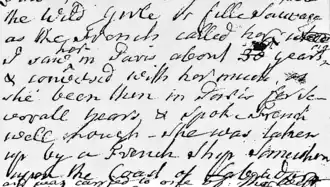 the Wild Girle or fille Sauvage
as the French called her
I saw her in Paris about years
& conversed with her much
she been then in Paris for se-
verall years & spoke French
well enough - she was taken
up by a French Ship somewhere
upon the Coast of
and was carried to one of